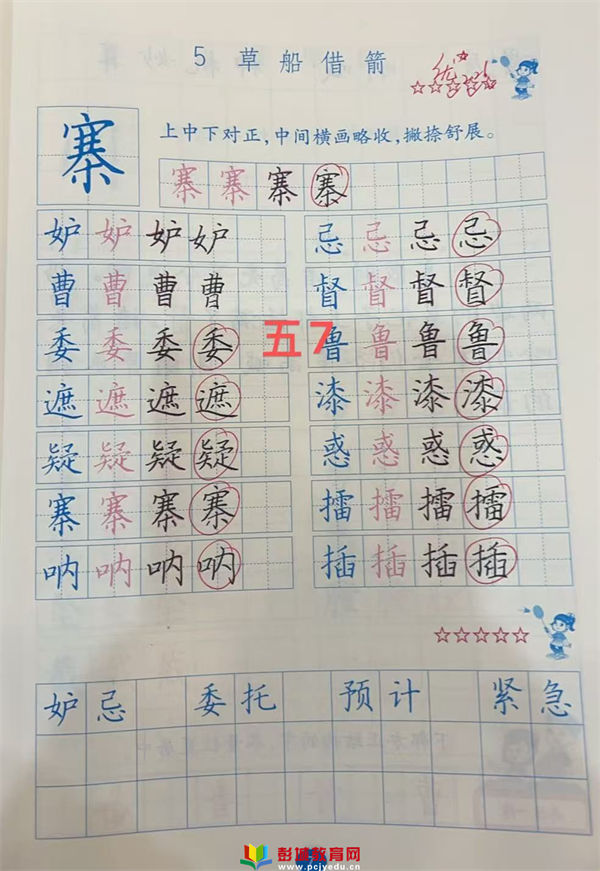 5 草船借箭
优
寨
上中下对正,中间横画略收,撇捺舒展。
寨 寨 寨 寨
妒 妒 妒 妒 忌 忌 忌 忌
曹 曹 曹 曹 督 督 督 督
委 委 委 委 鲁 鲁 鲁 鲁
五7
遮 遮 遮 遮 漆 漆 漆 漆
疑 疑 疑 疑 惑 惑 惑 惑
寨 寨 寨 寨 擂 擂 擂 擂
呐 呐 呐 呐 插 插 插 插
妒忌 委托 预计 紧急
彭城教育网
www.pcjyedu.cn